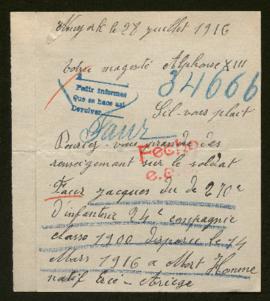 le 28 juillet 1916
votre magesté Alphonse XIII
34666
Pedir informes
que se hace así
Devolver
Sil-vous plait
Faur
Pourriez-vous des
renseigement sur le soldat
Fecho
e.c.
Faur jacques du de 270e
d'infanterie 24e compagnie
classe 1900 disparu le 14
Mars 1916 a Mort Homme
natif